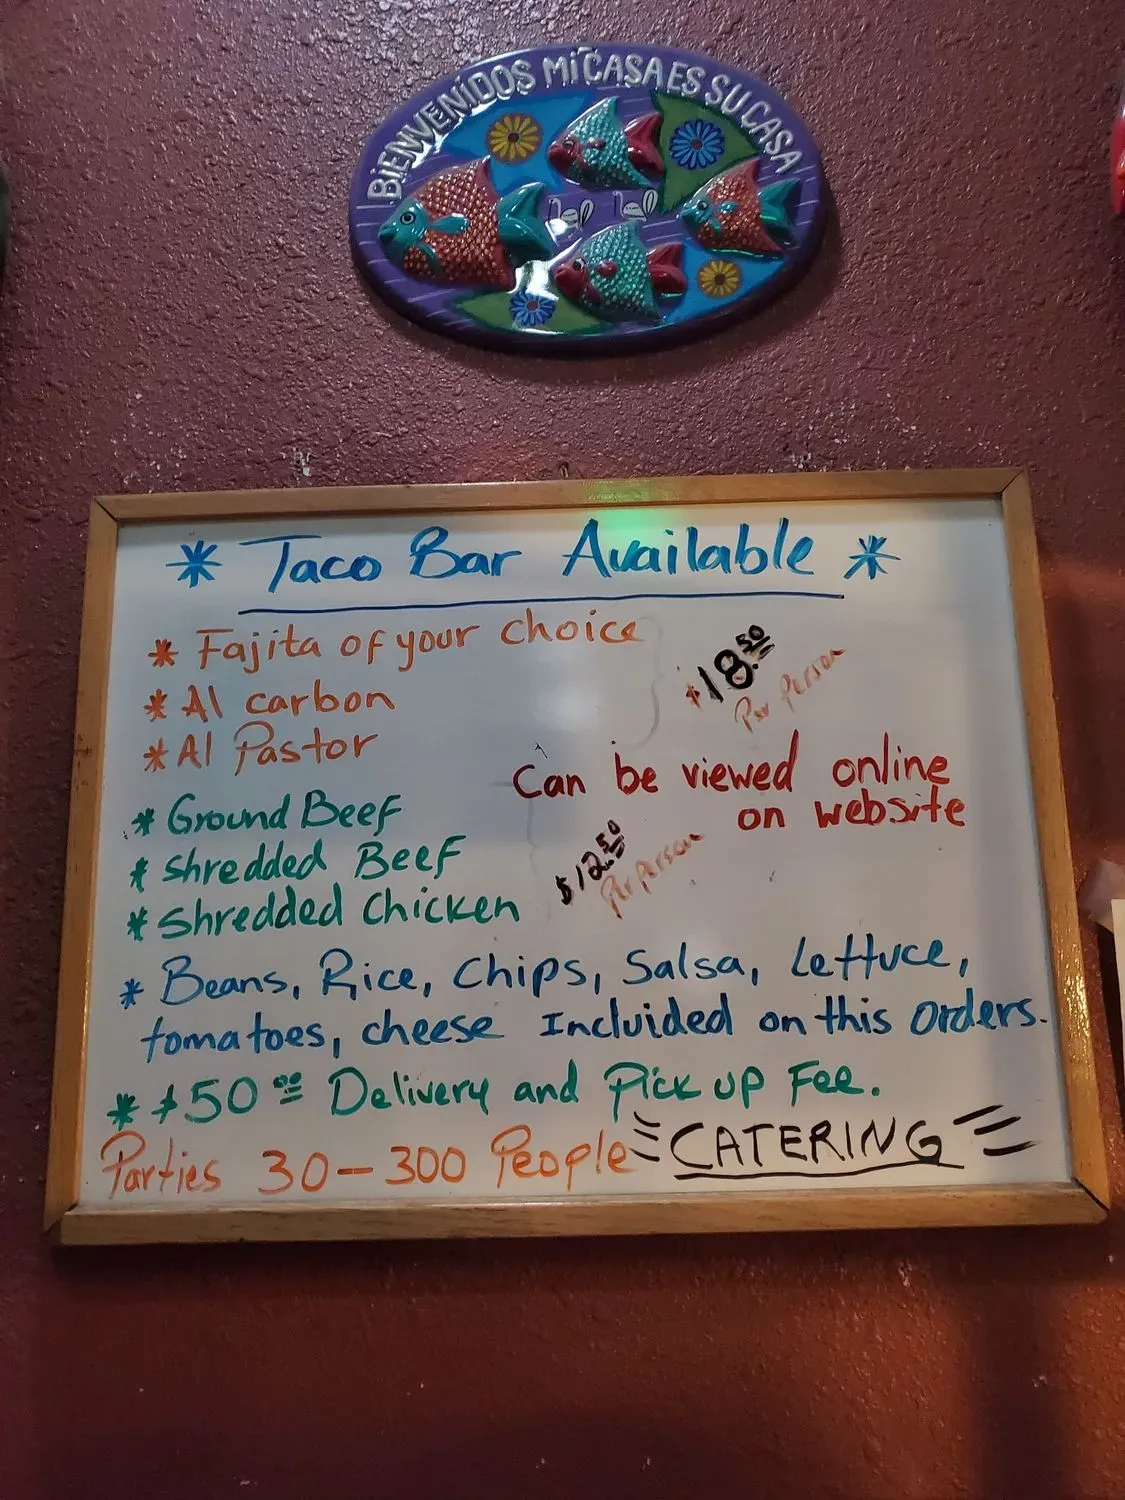 BIENVENIDOS MI CASA ES SU CASA
* Taco Bar Available *
* Fajita of your choice
* Al carbon
* Al Pastor
$18.50
Per person
Can be viewed online
on website
* Ground Beef
* Shredded Beef
* Shredded Chicken
$12.50
Per person
* Beans, Rice, Chips, Salsa, Lettuce,
tomatoes, cheese Incluided on this orders.
* $50.00 Delivery and Pick up Fee.
Parties 30-300 People CATERING